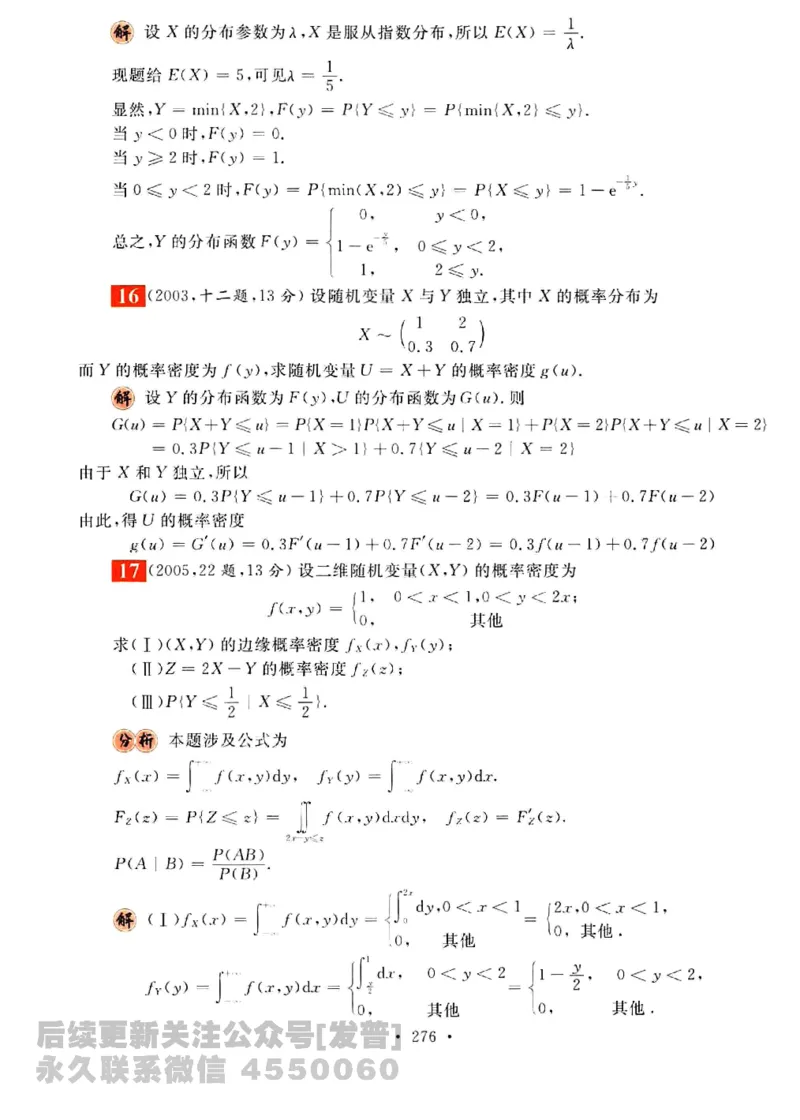 解 设 X 的分布参数为 λ,X 是服从指数分布,所以 E(X) = 1/λ.
现题给 E(X) = 5,可见 λ = 1/5.
显然,Y = min{X,2},F(y) = P{Y ≤ y} = P{min{X,2} ≤ y}.
当 y < 0 时,F(y) = 0.
当 y ≥ 2 时,F(y) = 1.
当 0 ≤ y < 2 时,F(y) = P{min(X,2) ≤ y} = P{X ≤ y} = 1 − e^{−1/5 y}.
总之,Y 的分布函数 F(y) = { 0, y < 0,
1 − e^{−y/5}, 0 ≤ y < 2,
1, 2 ≤ y.
16 (2003,十二题,13 分) 设随机变量 X 与 Y 独立,其中 X 的概率分布为
X ~ ( 1 2
0.3 0.7 )
而 Y 的概率密度为 f(y),求随机变量 U = X+Y 的概率密度 g(u).
解 设 Y 的分布函数为 F(y),U 的分布函数为 G(u). 则
G(u) = P{X+Y ≤ u} = P{X = 1}P{X+Y ≤ u | X = 1} + P{X = 2}P{X+Y ≤ u | X = 2}
= 0.3P{Y ≤ u−1 | X > 1} + 0.7{Y ≤ u−2 | X = 2}
由于 X 和 Y 独立,所以
G(u) = 0.3P{Y ≤ u−1} + 0.7P{Y ≤ u−2} = 0.3F(u−1) + 0.7F(u−2)
由此,得 U 的概率密度
g(u) = G′(u) = 0.3F′(u−1) + 0.7F′(u−2) = 0.3f(u−1) + 0.7f(u−2)
17 (2005,22 题,13 分) 设二维随机变量(X,Y) 的概率密度为
f(x,y) = { 1, 0 < x < 1,0 < y < 2x;
0, 其他
求(Ⅰ)(X,Y) 的边缘概率密度 f_X(x),f_Y(y);
(Ⅱ)Z = 2X − Y 的概率密度 f_Z(z);
(Ⅲ)P{Y ≤ 1/2 | X ≤ 1/2}.
分析 本题涉及公式为
f_X(x) = ∫_{−∞}^{+∞} f(x,y)dy, f_Y(y) = ∫_{−∞}^{+∞} f(x,y)dx.
F_Z(z) = P{Z ≤ z} = ∬_{2x−y≤z} f(x,y)dxdy, f_Z(z) = F′_Z(z).
P(A | B) = P(AB)/P(B).
解 (Ⅰ)f_X(x) = ∫_{−∞}^{+∞} f(x,y)dy = { ∫_0^{2x} dy,0 < x < 1 = { 2x,0 < x < 1,
0, 其他 0, 其他 .
f_Y(y) = ∫_{−∞}^{+∞} f(x,y)dx = { ∫_{y/2}^1 dx, 0 < y < 2 = { 1 − y/2, 0 < y < 2,
0, 其他 0, 其他 .
后续更新关注公众号[发普]
· 276 ·
永久联系微信 4550060